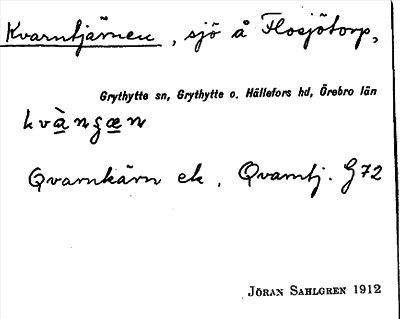 Kvarntjärnen, sjö å Flosjötorp,
Grythytte sn, Grythytte o. Hällefors hd, Örebro län
kvàngæn
Qvarnkärn ek, Qvarntj. G72
Jöran Sahlgren 1912